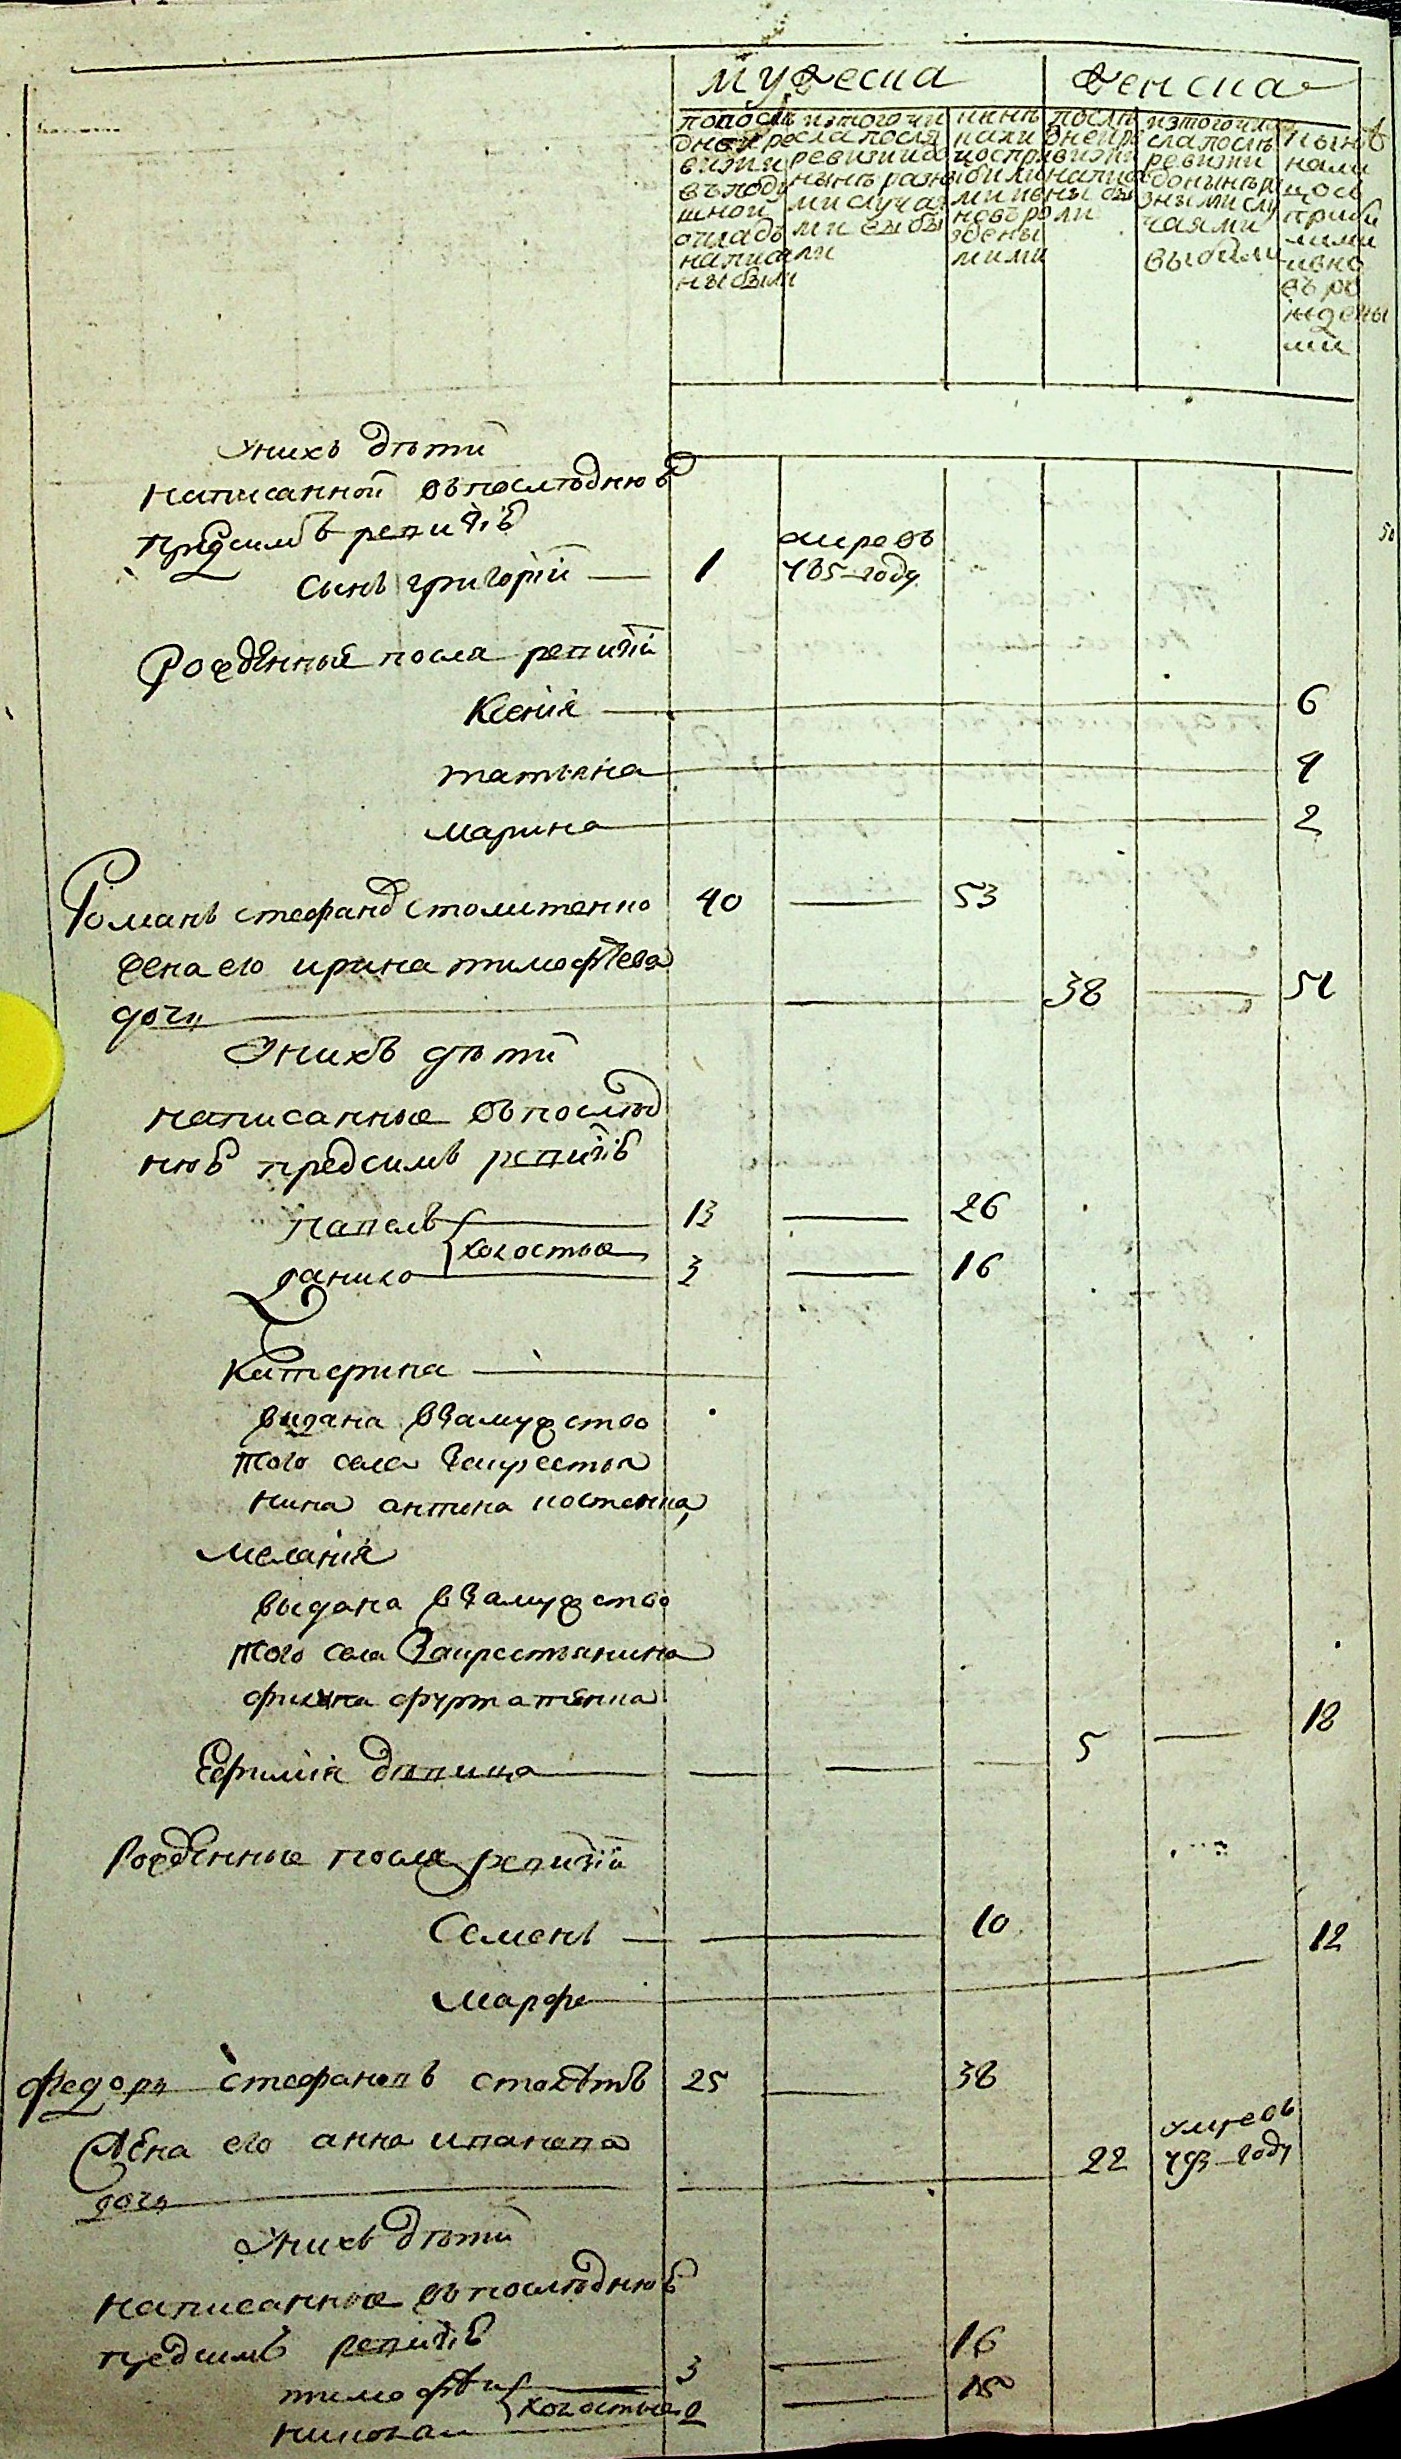 Мужеска
Женска
попосле
дней ре
визии
въ поду
шной
окладъ
написа
ны были
изтого чи
сла после
ревизии до
ныне разны
ми случая
ми выбы
ли
ныне
нали
цо спри
были
ми
ми
после
дней ре
визии
написа
ны бы
ли
изтого чис
сла после
ревизии
до ныне ра
зными слу
чаями
выбыли
ныне
нали
цо со
прибы
лими
вно
въ ро
жден
ми
Уних дети
Написанной въ последнюю
предсимъ ревизию
Сынъ григорий 1 умре въ 785 году
Рожденные после ревизии
Ксения 6
татьяна 4
марина 2
Романъ стефановъ столитенко 40 53
жена его ирина тимофеева
дочь 38 51
Уних дети
написанные въ послед
нюю предсимъ ревизию
павелъ 13 26
холостые
данило 3 16
Катерина
выдана в замужство
того села закрестья
нина антина костенка
мелания
выдана в замужство
того села закрестьянина
Ефимия девица 5 18
Рожденные после ревизии
Семенъ 10
марфа 12
федоръ стефановъ 25 38
Жена его анна иванова
дочь 22 умре въ 793 году
Уних дети
написанные въ последнюю
предсимъ ревизию
тимофей 3 16
холостые
николай 2 15